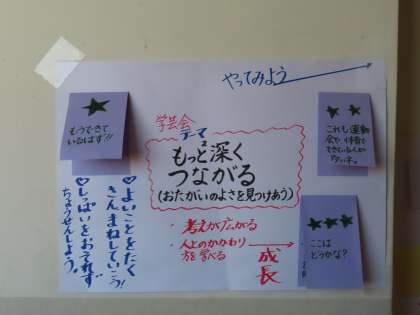 やってみよう
★
もうできて
いるはず!!
学芸会
テーマ
もっと深く
つながる
(おたがいのよさを見つけあう)
・考えが広がる
・人とのかかわり
方を学べる
成長
★★
これも運動
会や、体育で
できている人が
★★★
ここは
どうかな?
♡よいことをたく
さんまねしていこう!
♡しっぱいをおそれず
ちょうせんしよう。